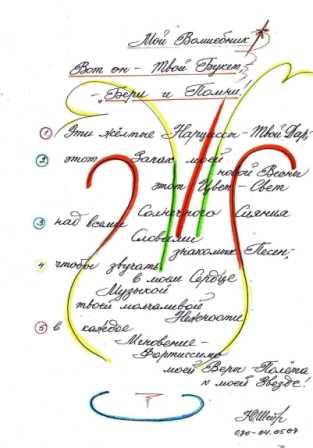 Мой Волшебник
Вот он - Твой Букет,
- Бери и Помни!
① Эти жёлтые Нарцисы - Твой Дар,
② этот Запах моей
новой Весны
этот Цвет - Свет
Солнечного Сияния
③ над всеми Словами
знакомых Песен,
④ чтобы звучать
в моем Сердце
Музыкой
твоей молчаливой
Нежности
⑤ в каждое
Мгновение -
Фортиссимо
моей Веры - Полёта
к моей Звезде!